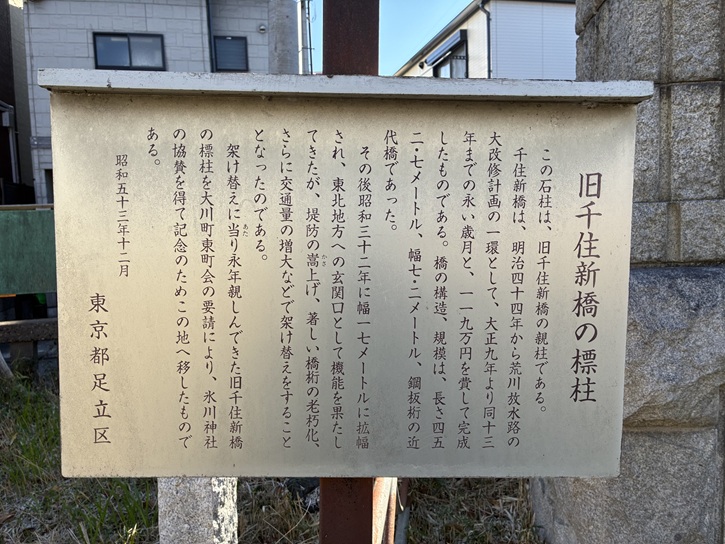 旧千住新橋の標柱
この石柱は、旧千住新橋の親柱である。
千住新橋は、明治四十四年から荒川放水路の
大改修計画の一環として、大正九年より同十三
年までの永い歳月と、一一九万円を費して完成
したものである。橋の構造、規模は、長さ四五
二・七メートル、幅七・二メートル、鋼板桁の近
代橋であった。
その後昭和三十二年に幅一七メートルに拡幅
され、東北地方への玄関口として機能を果たし
てきたが、堤防の嵩上げ、著しい橋桁の老朽化、
さらに交通量の増大などで架け替えをすること
となったのである。
架け替えに当り永年親しんできた旧千住新橋
の標柱を大川町東町会の要請により、氷川神社
の協賛を得て記念のためこの地へ移したもので
ある。
昭和五十三年十二月
東京都足立区